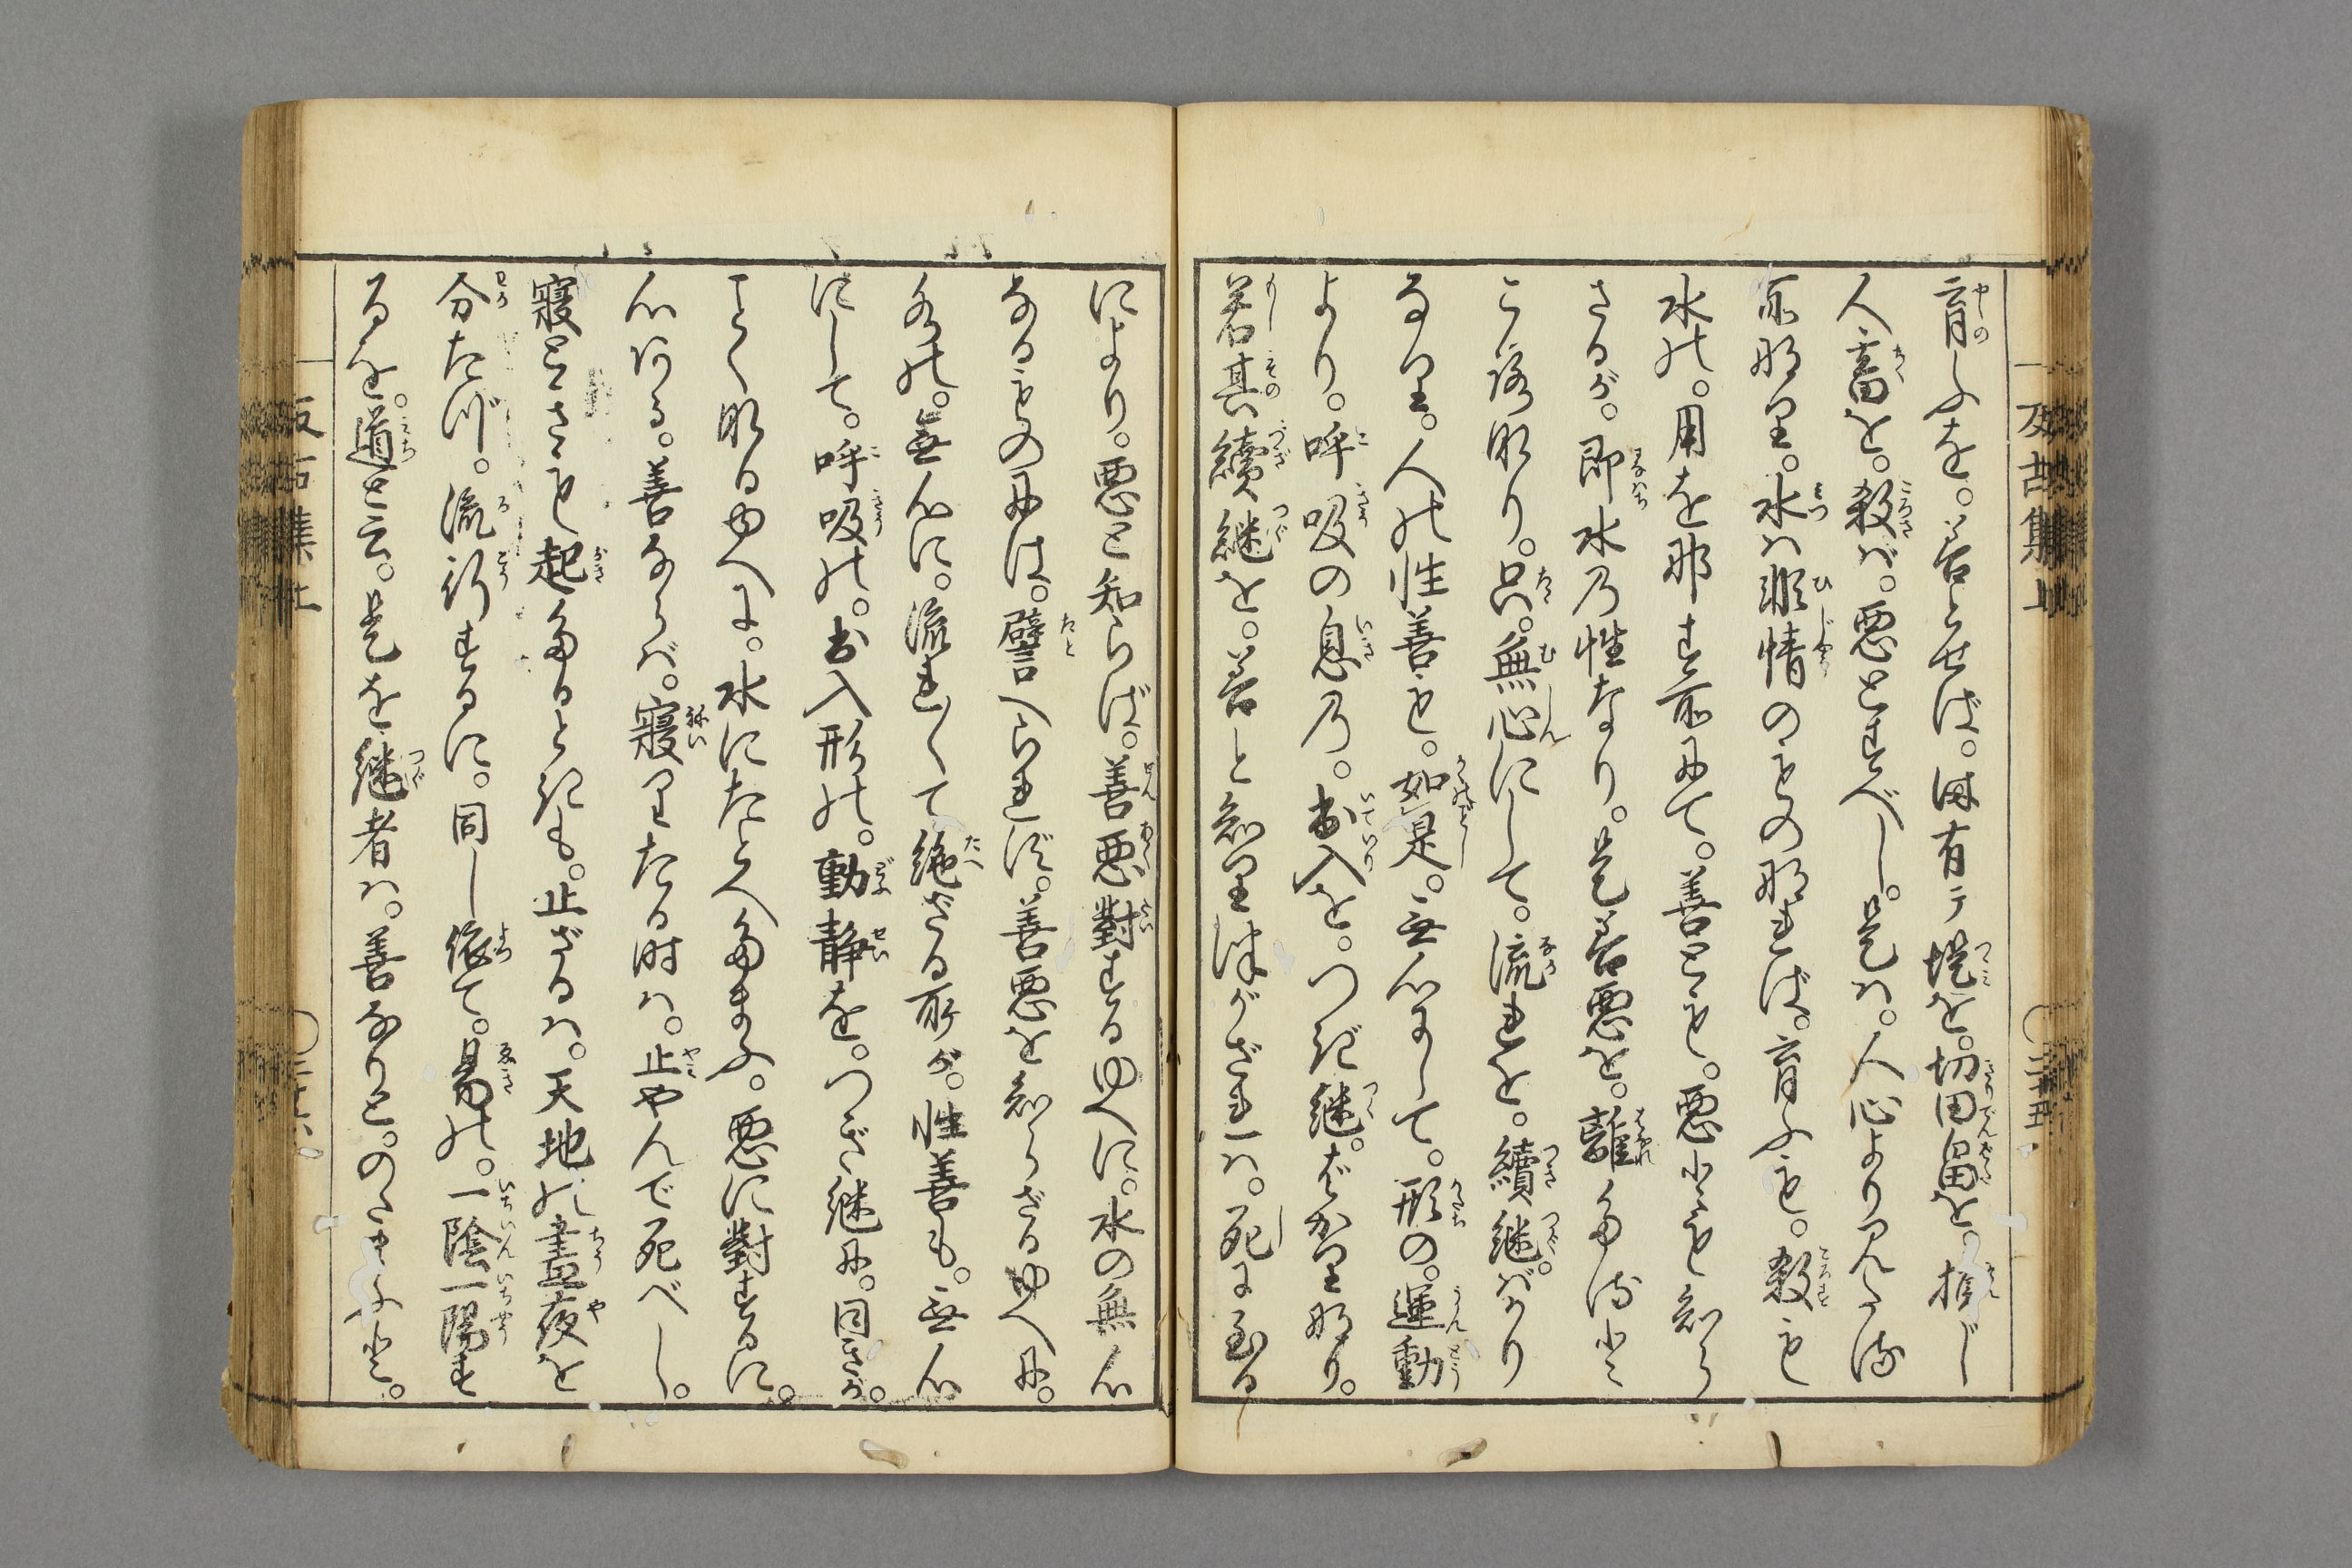 育ふを。善とせば。由有テ堤を。切田畠を。損じ
人畜を。殺さば。悪とすべし。是ハ。人心より見たる
所なり。水ハ非情のもの なれば。育ふも。殺も
水の。用を那す所にて。善とも。悪とも知ら
ざるが。即水乃性なり。是善悪を。離たると
ころなり。只。無心にして。流るを。續継ばかり
なり。人の性善も。如是。無心にして。形の。運動
より。呼吸の息乃。出入を。つぎ継。ばかりなり。
若其續継を。善と知り継がざれハ。死に至る
により。悪と知らば。善悪對するゆへに。水の無心
なるものには。譬へられず。善悪を知らざるゆへに。
水の。無心に。流れて絶ざる所が。性善も。無心
にして。呼吸の。出入形の。動静を。つぎ継に。同きが。
ごとくなるゆへに。水にたとへたまふ。悪に對するに。
心ある。善ならば。寝りたる時ハ。止やんで死べし。
寝ときも起たるときも。止ざるハ。天地の晝夜を
分たず。流行するに。同し依て。易の。一陰一陽す
るを。道と云。是を継者ハ。善なりと。のたまふ也。
反古集上
〇三十五